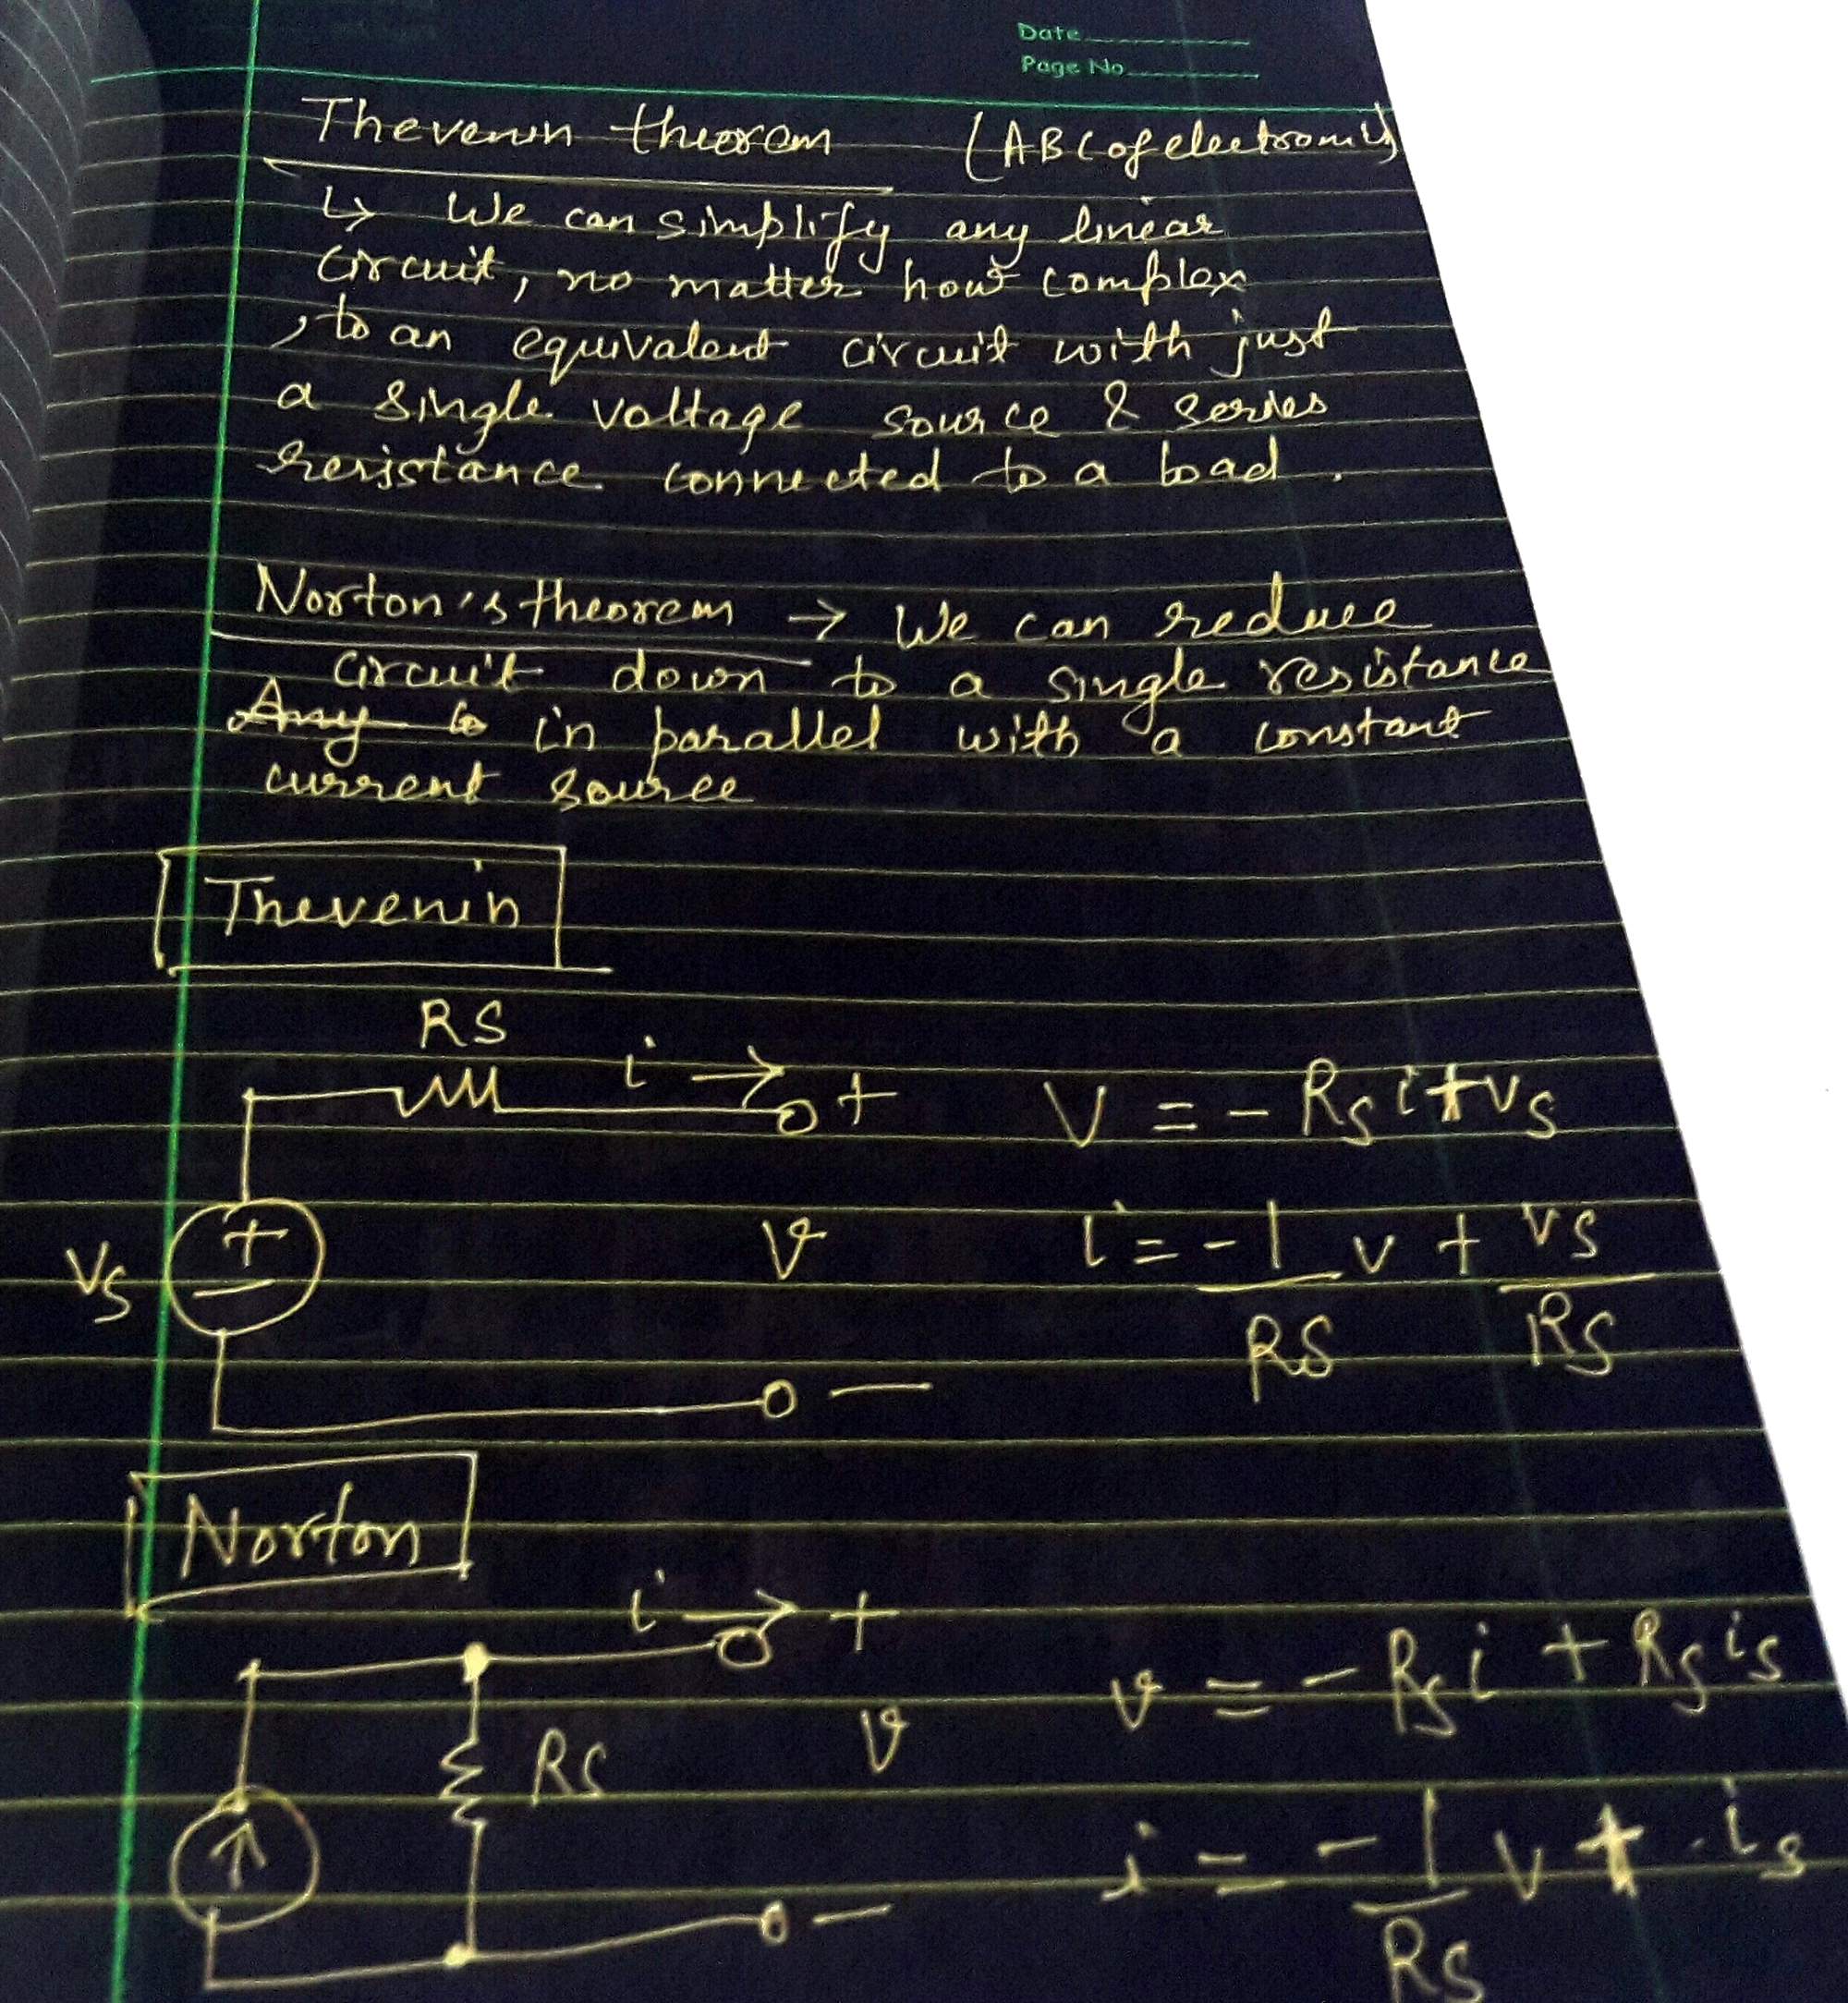 Date
Page No.
Thevenin theorem (ABC of electronics)
↳ We can simplify any linear
circuit, no matter how complex
, to an equivalent circuit with just
a single voltage source & series
resistance connected to a load .
Norton's theorem → We can reduce
circuit down to a single resistance
Any to in parallel with a constant
current source
Thevenin
RS
i → +
V = - RS i + vS
VS + -
v
i = -1/RS v + VS/RS
-
Norton
i → +
v = - RS i + RS iS
RS
v
i = -1/RS v + iS
-